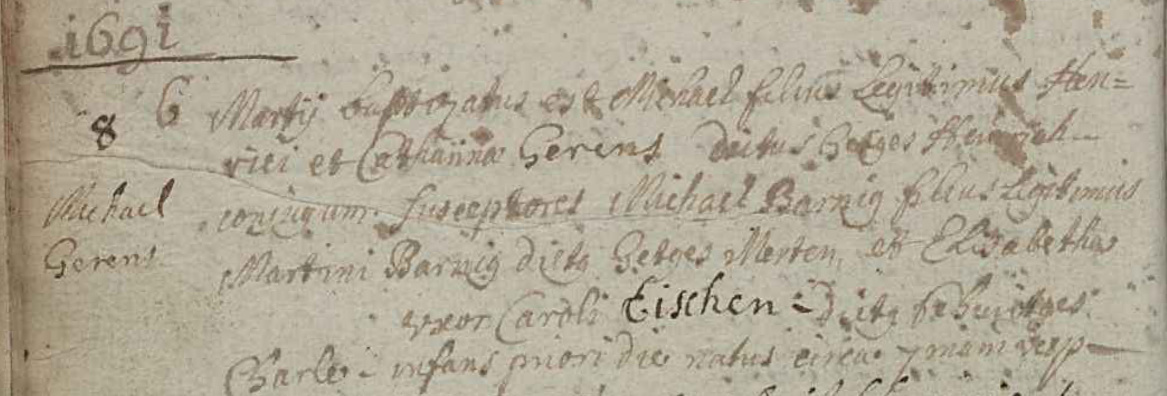 1691
8
6 Martij baptizatus est Michael filius Legitimus Hen=
rici et Catharina Gerens dictus Getges Heinrich
Michael
Gerens
conjugum. Susceptores Michael Barnig filius Legitimus
Martini Barnig dictq Getges Merten, et Elisabetha
uxor Caroli Eischen - dictq
Charle - infans priori die natus circa 7mam vesp